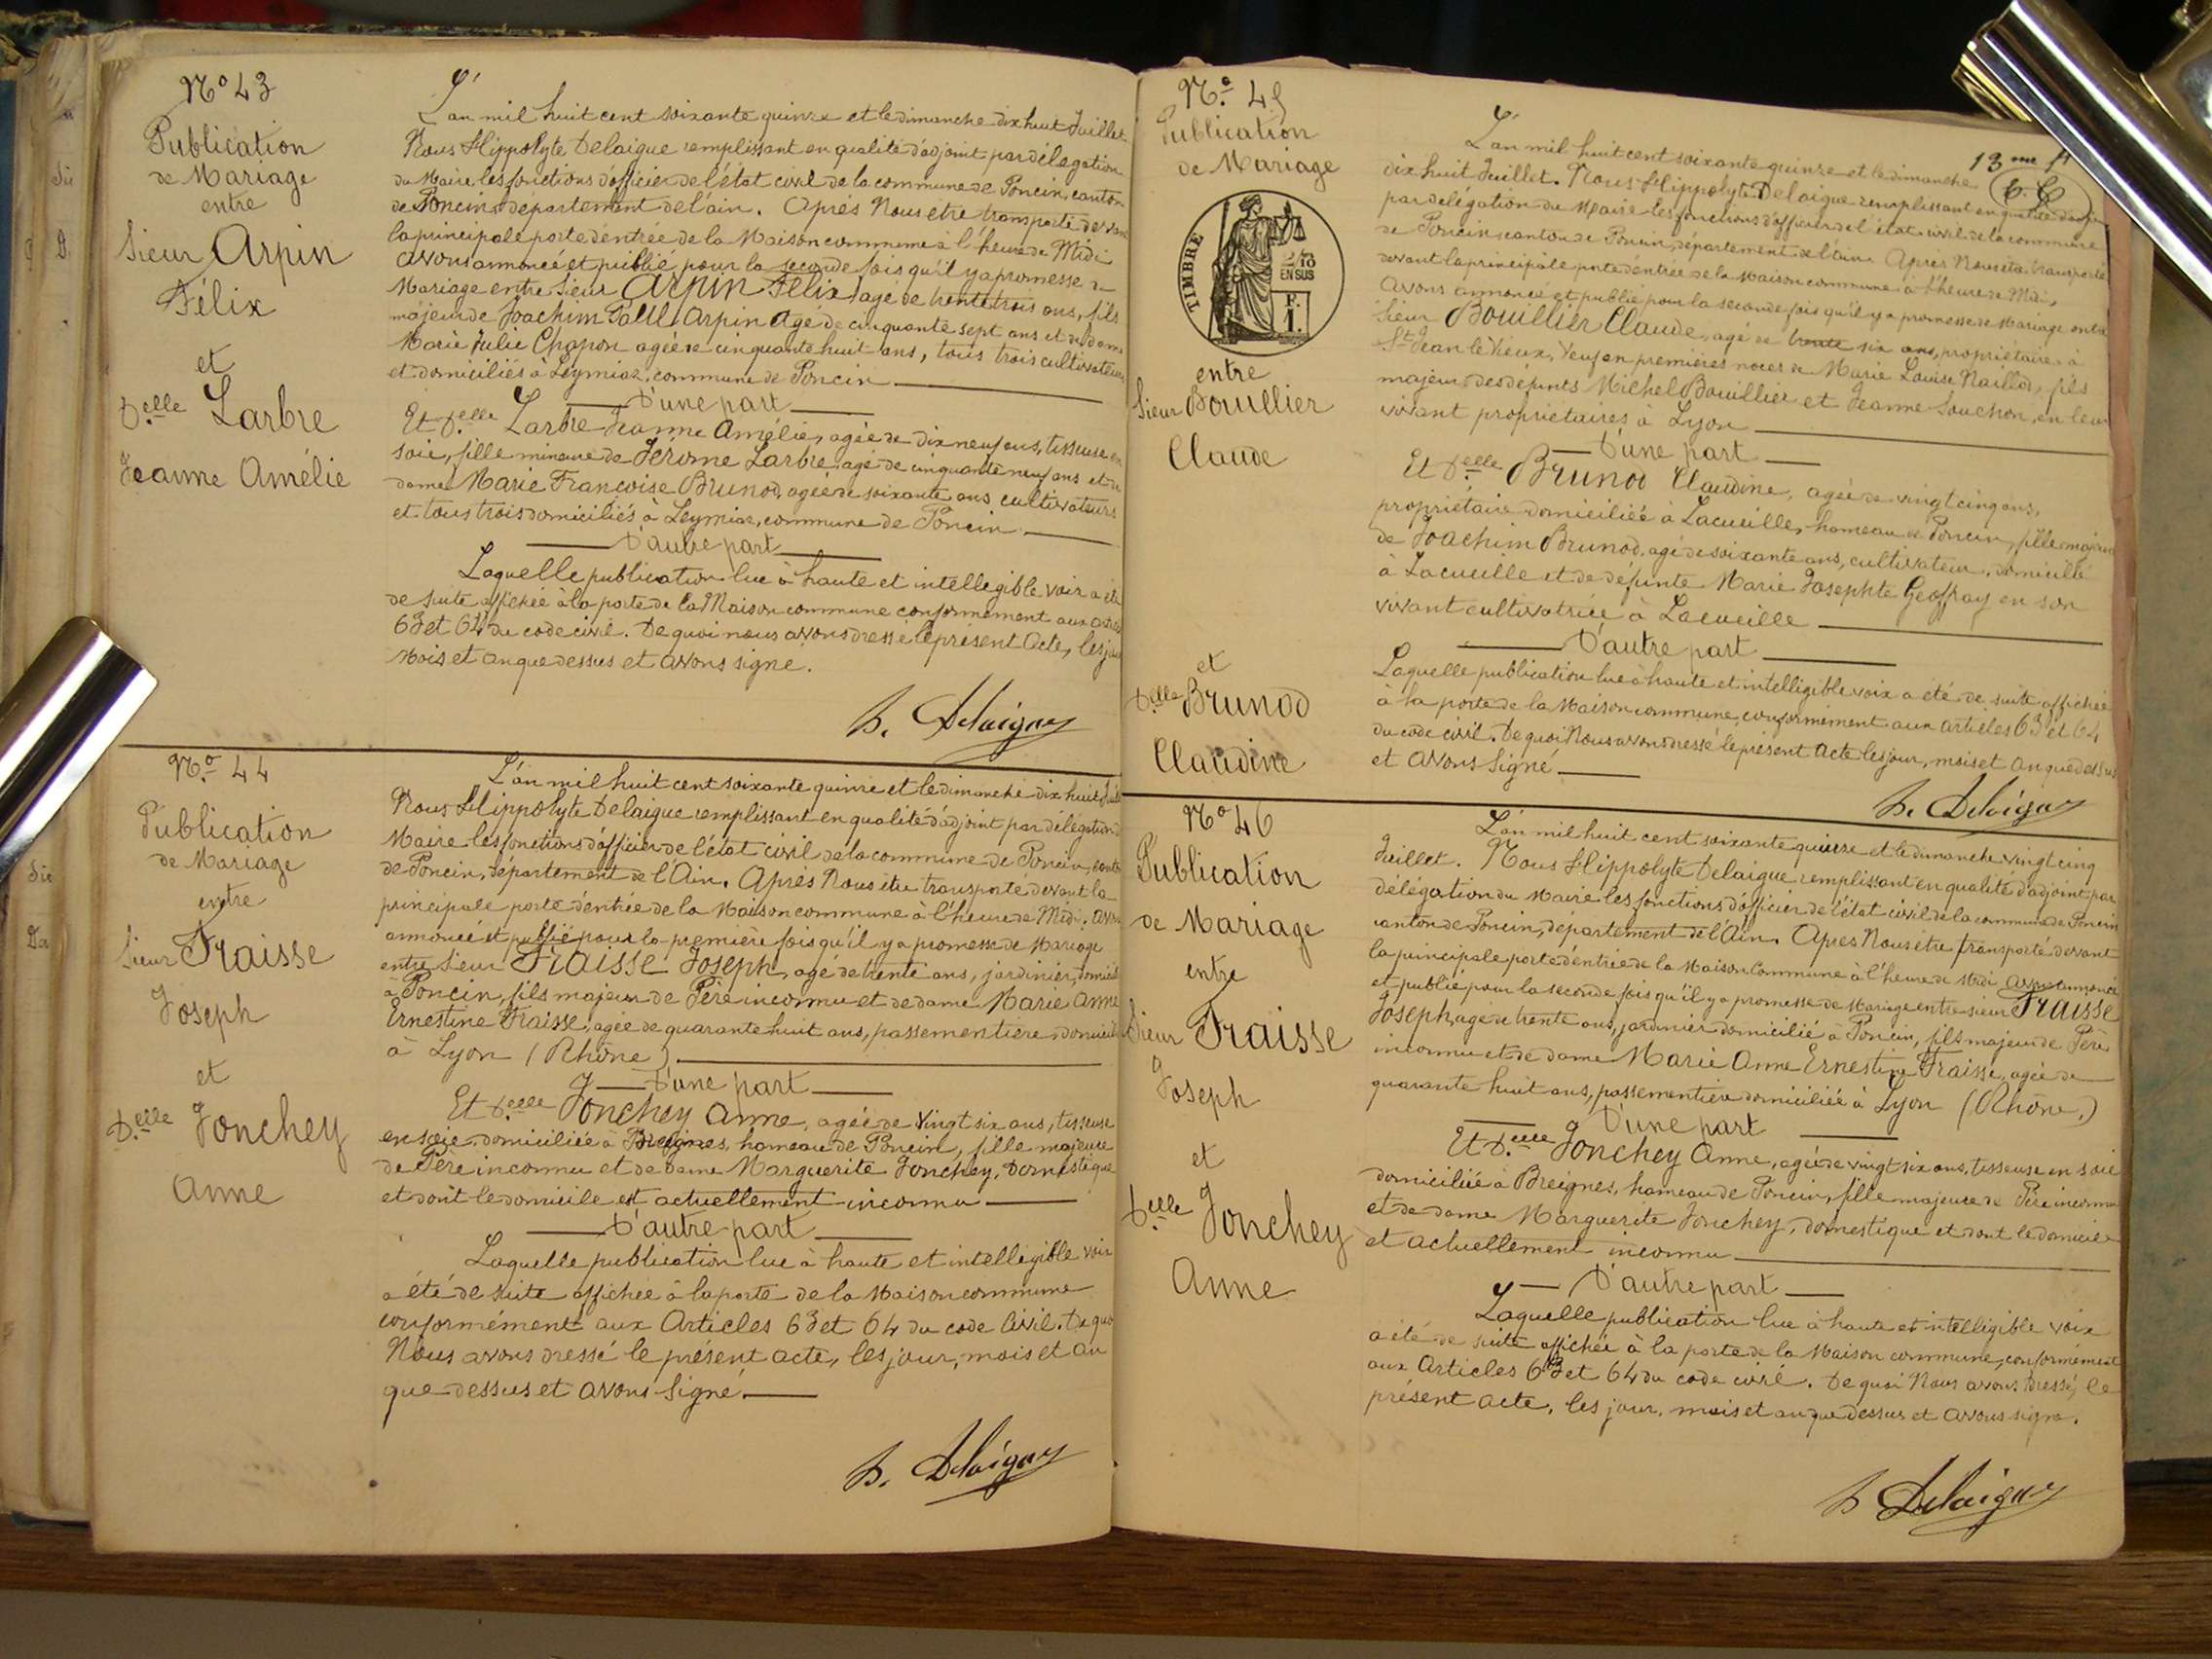 Nº 43
Publication
de Mariage
entre
Sieur Arpin
Félix
et
D.elle Larbre
Jeanne Amélie
L'an mil huit cent soixante quinze et le dimanche dix huit Juillet
Nous Hippolyte Delaigue remplissant en qualité d'adjoint par délégation
du Maire les fonctions d'officier de l'état civil de la commune de Poncin, canton
de Poncin, département de l'ain. Après Nous être transporté devant
la principale porte d'entrée de la Maison commune à l'heure de Midi
avons annoncé et publié pour la seconde fois qu'il y a promesse de
Mariage entre Sieur Arpin Félix, agé de trente trois ans, fils
majeur de Joachim Arpin agé de cinquante sept ans et de dame
Marie Julie Chapon agée de cinquante huit ans, tous trois cultivateurs
et domiciliés à Leymiaz, commune de Poncin
D'une part
Et D.elle Larbre Jeanne Amélie, agée de dix neuf ans, tisseuse en
soie, fille mineure de Jérome Larbre, agé de cinquante neuf ans et de
dame Marie Françoise Brunod, agée de soixante ans cultivateurs
et tous trois domiciliés à Leymiaz, commune de Poncin
D'autre part
Laquelle publication lue à haute et intellegible voix a été
de suite affichée à la porte de la Maison commune conformément aux articles
63 et 64 du code civil. De quoi nous avons dressé le présent Acte, les jour
Mois et an que dessus et avons signé.
h. Delaigue
Nº 44
Publication
de Mariage
entre
Sieur Fraisse
Joseph
et
D.elle Jonchey
Anne
L'an mil huit cent soixante quinze et le dimanche dix huit Juillet
Nous Hippolyte Delaigue remplissant en qualité d'adjoint par délégation du
Maire les fonctions d'officier de l'état civil de la commune de Poncin, canton
de Poncin, département de l'Ain. Après Nous être transporté devant la
principale porte d'entrée de la Maison commune à l'heure de Midi, avons
annoncé et publié pour la première fois qu'il y a promesse de Mariage
entre sieur Fraisse Joseph, agé de trente ans, jardinier, domicilié
à Poncin, fils majeur de Père inconnu et de dame Marie Anne
Ernestine Fraisse, agée de quarante huit ans, passementière domiciliée
à Lyon (Rhône)
D'une part
Et D.elle Jonchey Anne, agée de vingt six ans, tisseuse
en soie domiciliée à Breignes, hameau de Poncin, fille majeure
de Père inconnu et de Dame Marguerite Jonchey, Domestique
et dont le domicile est actuellement inconnu
D'autre part
Laquelle publication lue à haute et intelligible voix
a été de suite affichée à la porte de la Maison commune
conformément aux Articles 63 et 64 du code Civil. De quoi
Nous avons dressé le présent acte, les jour, mois et an
que dessus et avons signé.
h. Delaigue
Nº 45
Publication
de Mariage
TIMBRE
2/10
EN SUS
F.
1.
entre
Sieur Bouillier
Claude
et
D.elle Brunod
Claudine
13me ft
L'an mil huit cent soixante quinze et le dimanche
dix huit Juillet. Nous Hippolyte Delaigue remplissant en qualité d'adjoint
par délégation du Maire les fonctions d'officier de l'état civil de la commune
de Poncin canton de Poncin, département de l'Ain. Après Nous être transporté
devant la principale porte d'entrée de la Maison commune à l'heure de Midi,
Avons annoncé et publié pour la seconde fois qu'il y a promesse de Mariage entre
Sieur Bouillier Claude, agé de trente six ans, propriétaire à
St Jean le Vieux, Veuf en premières noces de Marie Louise fils
majeur des défunts Michel Bouillier et Jeanne Souchon, en leur
vivant propriétaires à Lyon
D'une part
Et D.elle Brunod Claudine, agée de vingt cinq ans,
propriétaire domiciliée à Lacueille, hameau de Poncin, fille majeure
de Joachim Brunod, agé de soixante ans, cultivateur, domicilié
à Lacueille et de défunte Marie Josephte Geoffray en son
vivant cultivatrice à Lacueille
D'autre part
Laquelle publication lue à haute et intelligible voix a été de suite affichée
à la porte de la Maison commune, conformément aux articles 63 et 64
du code civil. De quoi Nous avons dressé le présent Acte les jour, mois et an que dessus
et avons Signé
h. Delaigue
Nº 46
Publication
de Mariage
entre
Sieur Fraisse
Joseph
et
D.elle Jonchey
Anne
L'an mil huit cent soixante quinze et le dimanche vingt cinq
Juillet. Nous Hippolyte Delaigue remplissant en qualité d'adjoint par
délégation du Maire les fonctions d'officier de l'état civil de la commune de Poncin
canton de Poncin, département de l'Ain. Après Nous être transporté devant
la principale porte d'entrée de la Maison Commune à l'heure de Midi avons annoncé
et publié pour la seconde fois qu'il y a promesse de Mariage entre sieur Fraisse
Joseph, agé de trente ans, jardinier domicilié à Poncin, fils majeur de Père
inconnu et de dame Marie Anne Ernestine Fraisse, agée de
quarante huit ans, passementière domiciliée à Lyon (Rhône,)
D'une part
Et D.elle Jonchey Anne, agée de vingt six ans, tisseuse en soie
domiciliée à Breignes, hameau de Poncin, fille majeure de Père inconnu
et de dame Marguerite Jonchey, domestique et dont le domicile
et actuellement inconnu
D'autre part
Laquelle publication lue à haute et intelligible voix
a été de suite affichée à la porte de la Maison commune, conformément
aux Articles 63 et 64 du code civil. De quoi Nous avons dressé, le
présent acte, les jour, mois et an que dessus et avons signé.
h Delaigue